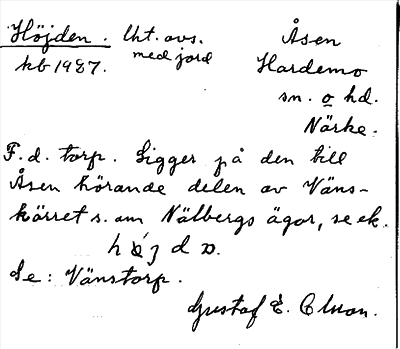 Höjden. Uht. avs. Åsen
kb 1987. med jord Hardemo
sn. o hd.
Närke.
F. d. torp. Ligger på den till
Åsen hörande delen av Väns-
kärret s. om Nälbergs ägor, se ek.
Se: Vänstorp.
Gustaf E.